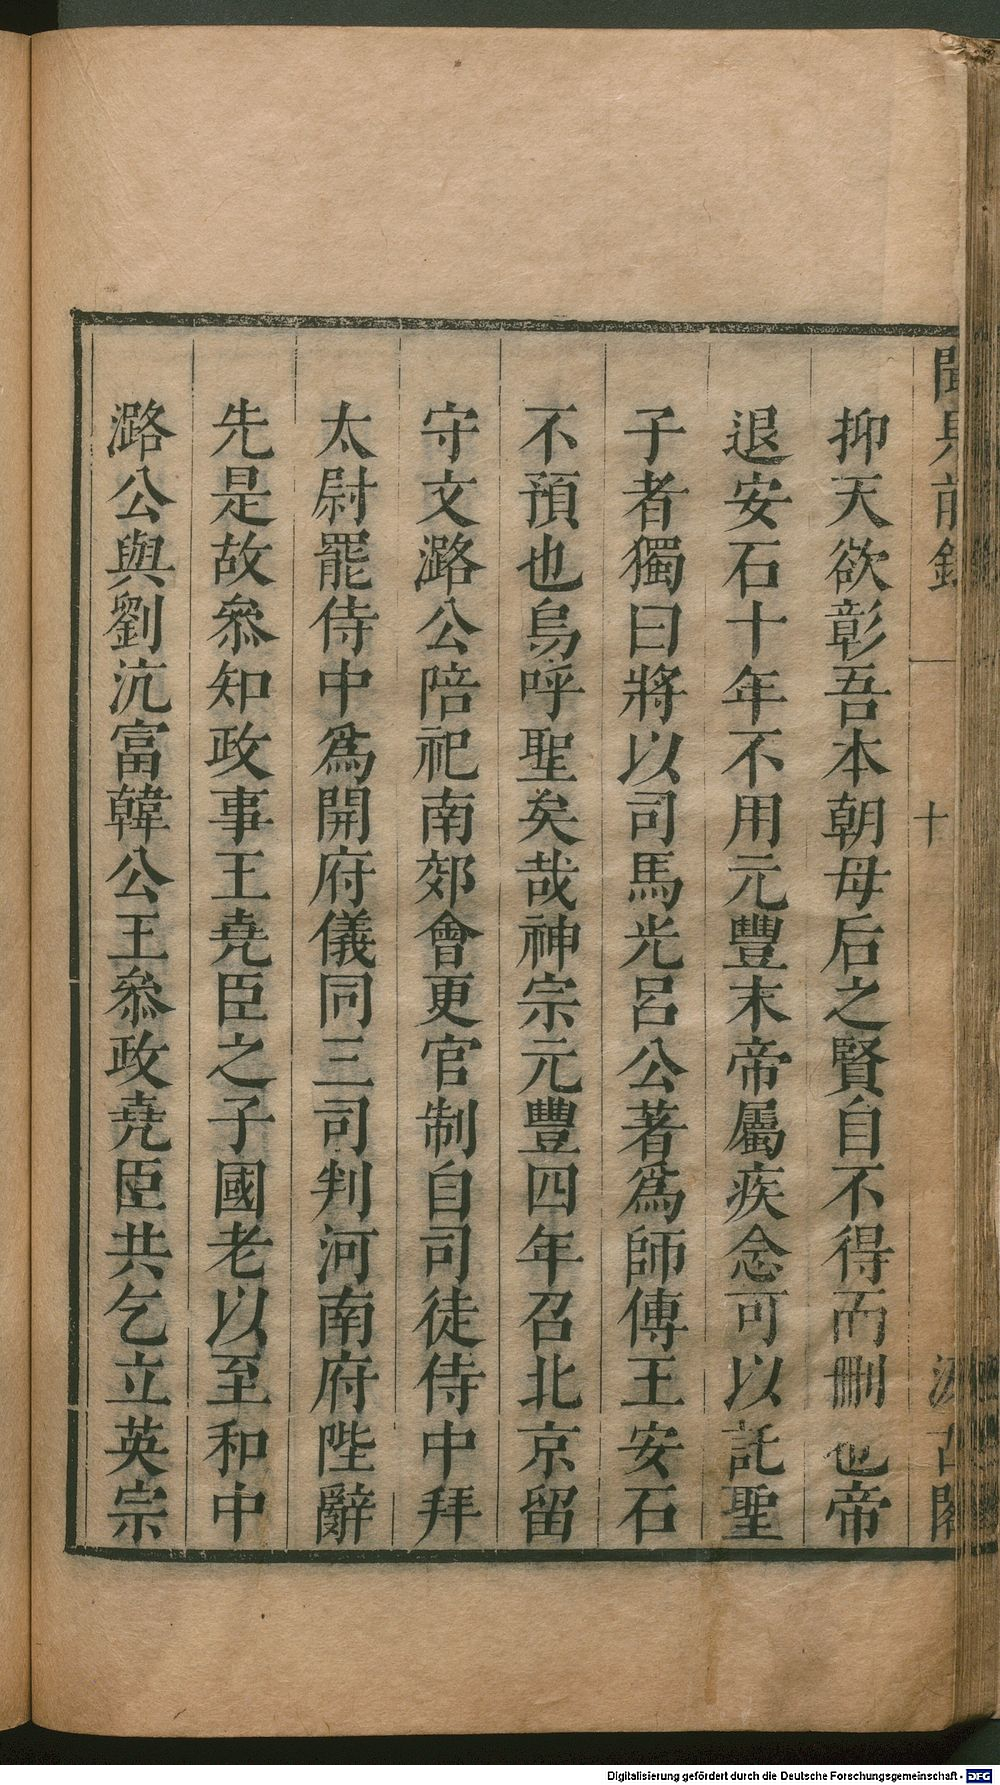 聞見前錄
十
汲古閣
抑天欲彰吾本朝母后之賢自不得而刪也帝
退安石十年不用元豐末帝屬疾念可以託聖
子者獨曰將以司馬光呂公著爲師傅王安石
不預也烏呼聖矣哉神宗元豐四年召北京留
守文潞公陪祀南郊會更官制自司徒侍中拜
太尉罷侍中爲開府儀同三司判河南府陛辭
先是故叅知政事王堯臣之子國老以至和中
潞公與劉沆富韓公王叅政堯臣共乞立英宗
Digitalisierung gefördert durch die Deutsche Forschungsgemeinschaft - DFG